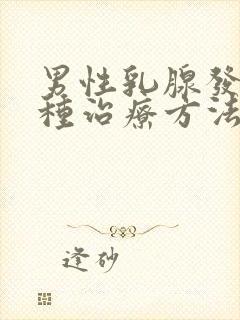 男性乳腺發
種治療方法
逢砂